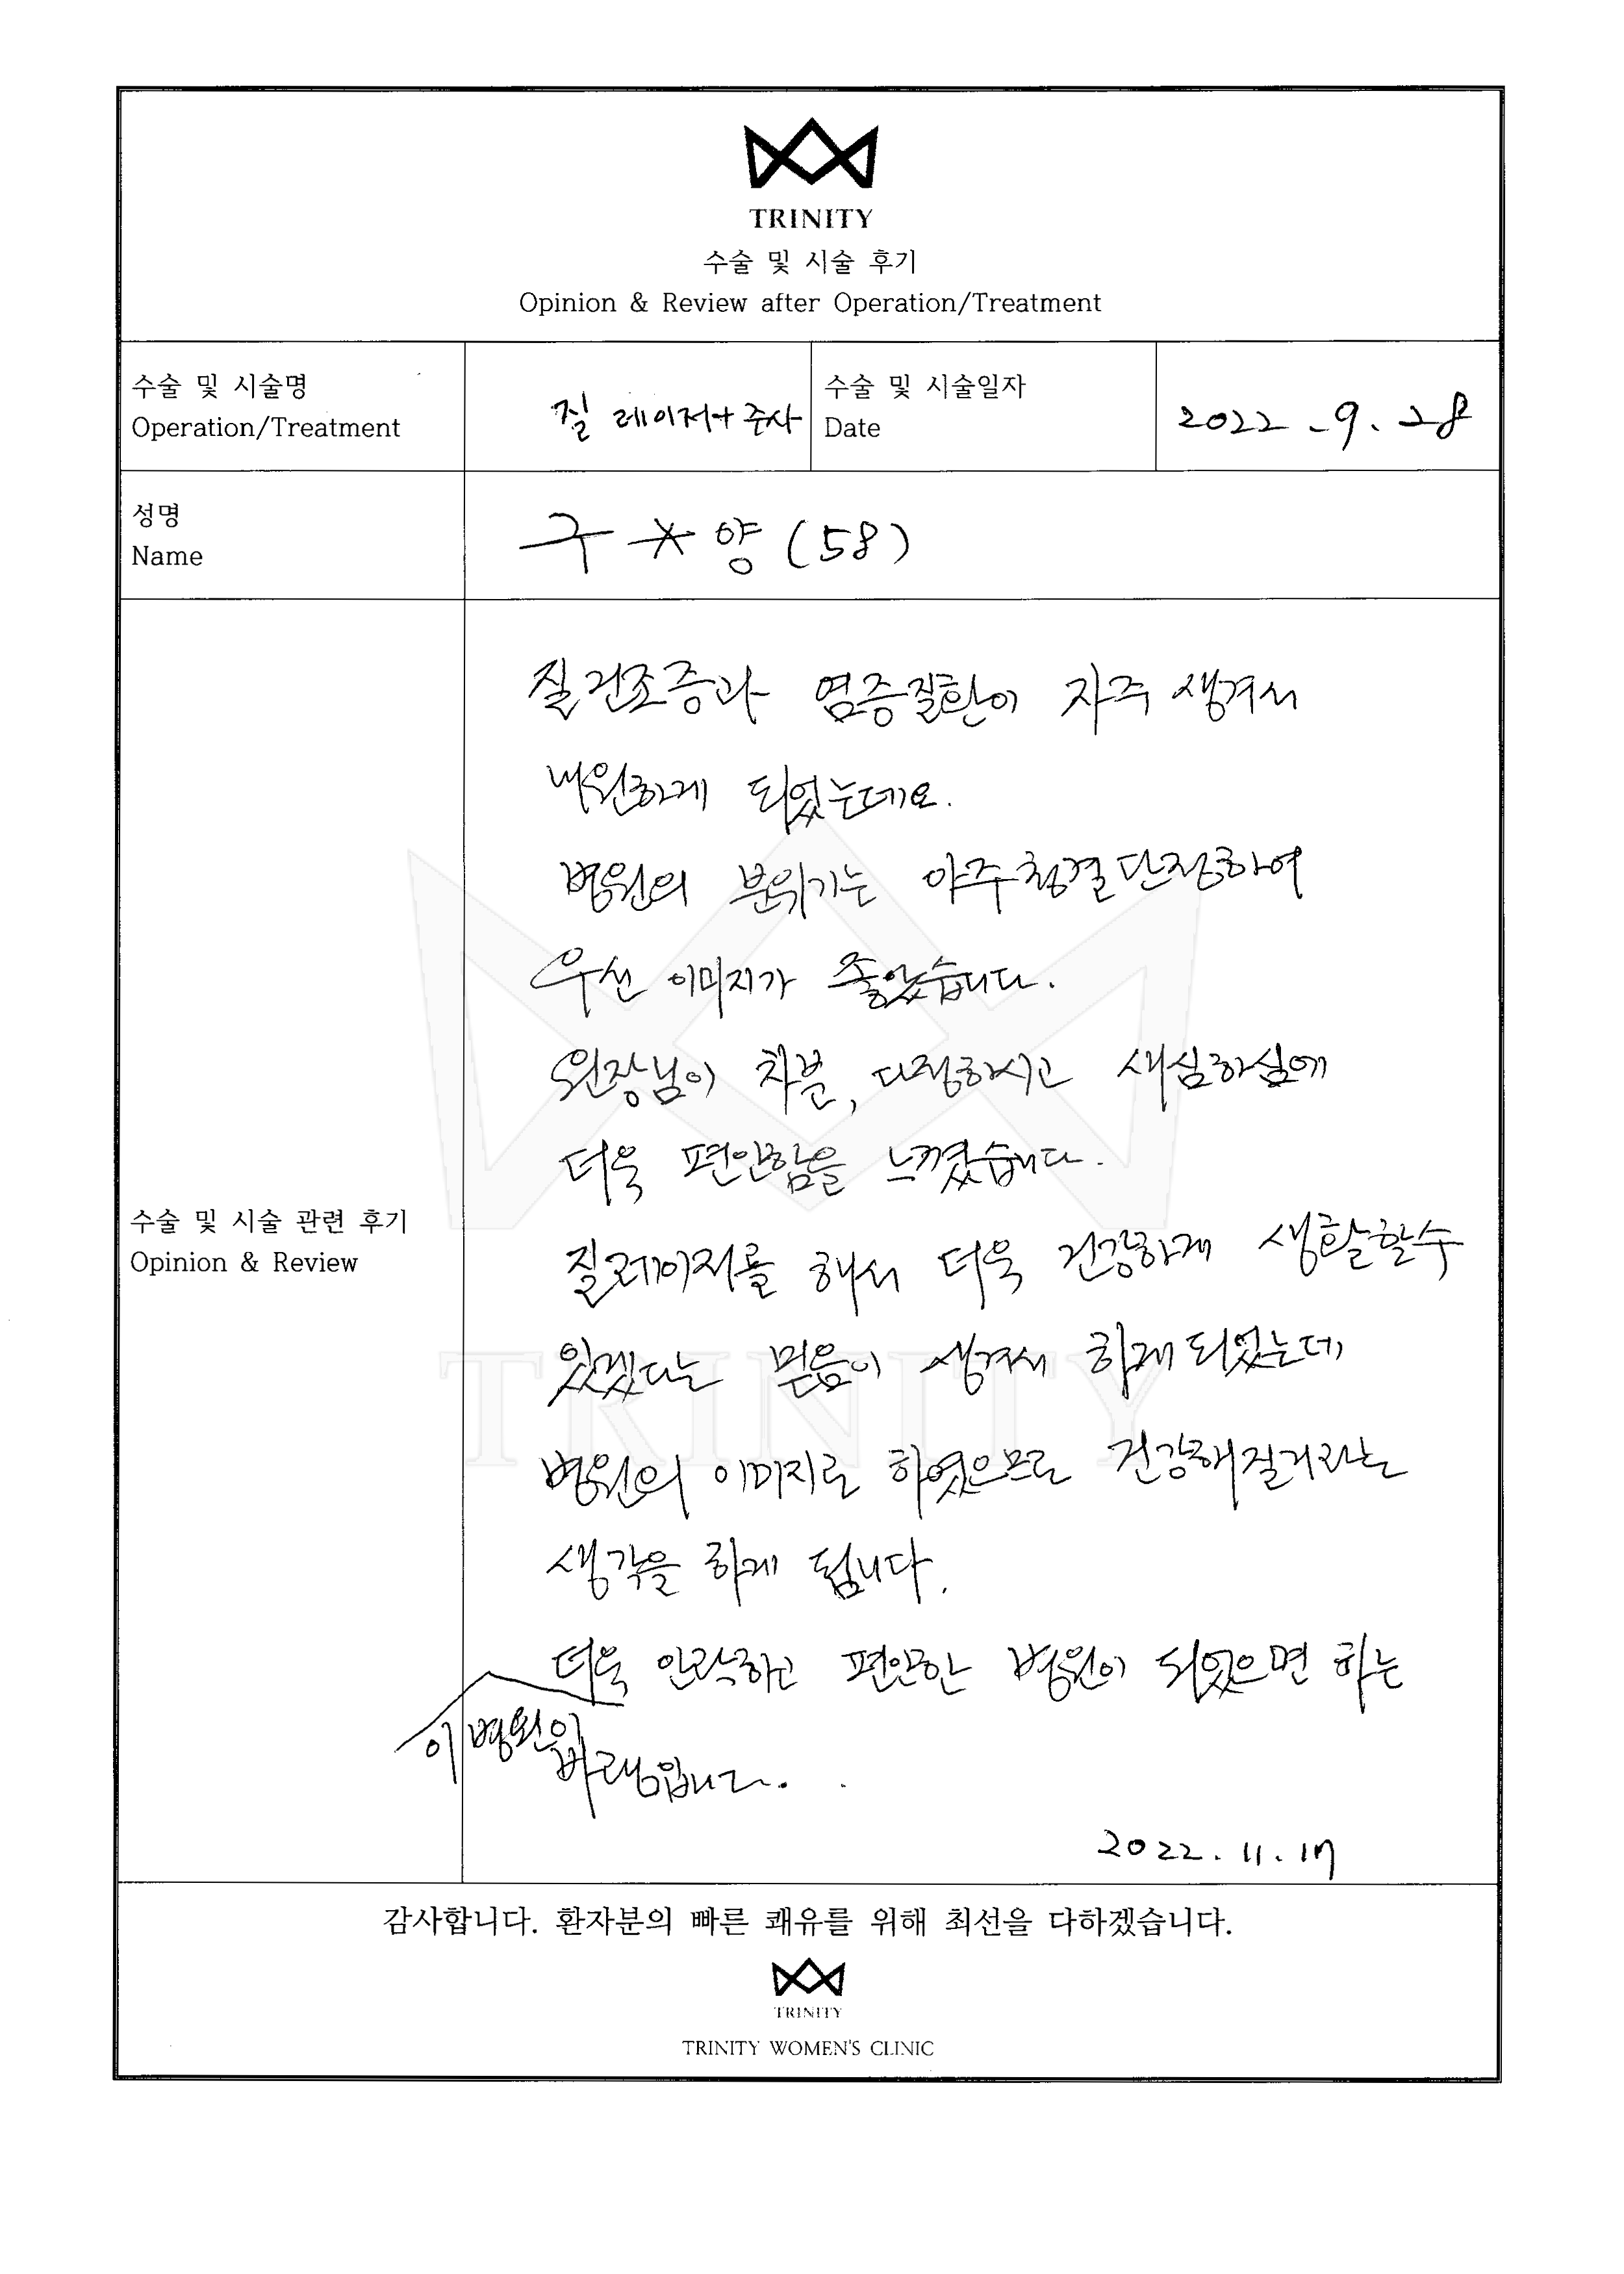 TRINITY
수술 및 시술 후기
Opinion & Review after Operation/Treatment
수술 및 시술명
Operation/Treatment
질 레이저+주사
수술 및 시술일자
Date
2022.9.28
성명
Name
구*양(58)
수술 및 시술 관련 후기
Opinion & Review
질건조증과 염증질환이 자주 생겨서
내원하게 되었는데요.
병원의 분위기는 아주 청결 단정하여
우선 이미지가 좋았습니다.
원장님이 차분, 다정하시고 새심하심에
더욱 편안함을 느꼈습니다.
질레이저를 해서 더욱 건강하게 생활할수
있겠다는 믿음이 생겨서 하게 되었는데
병원의 이미지로 하였으므로 건강해질거라는
생각을 하게 됩니다.
더욱 안락하고 편안한 병원이 되었으면 하는
이 병원의
바램입니다.
2022.11.17
TRINITY
감사합니다. 환자분의 빠른 쾌유를 위해 최선을 다하겠습니다.
TRINITY
TRINITY WOMEN'S CLINIC